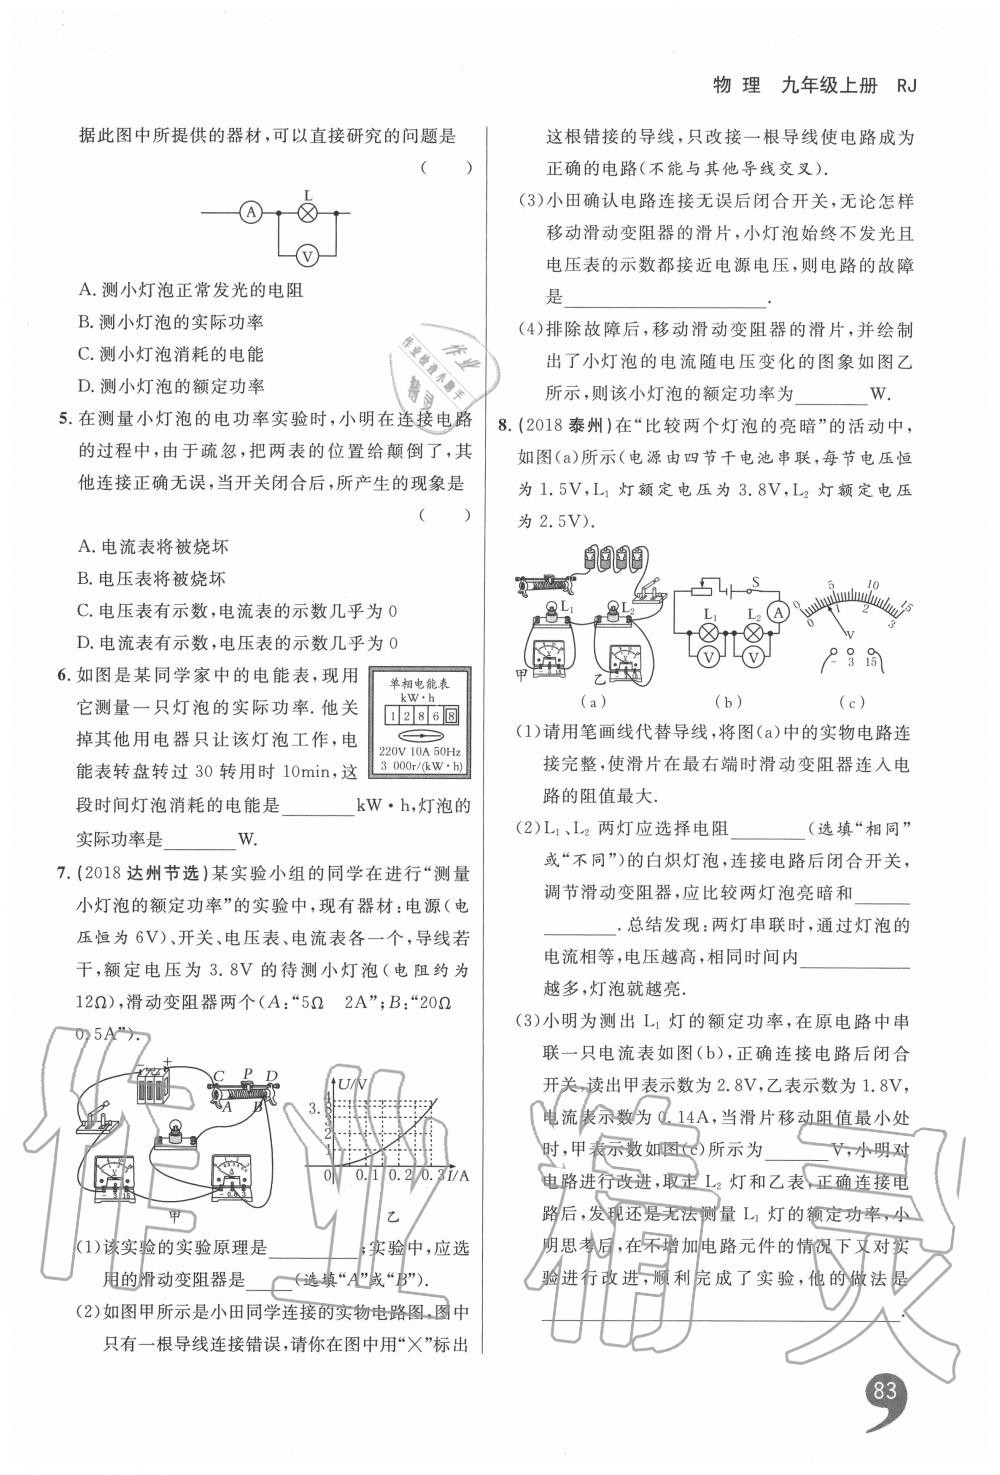 物 理 九年级上册 RJ
据此图中所提供的器材,可以直接研究的问题是
( )
L
A
V
A. 测小灯泡正常发光的电阻
B. 测小灯泡的实际功率
C. 测小灯泡消耗的电能
D. 测小灯泡的额定功率
5. 在测量小灯泡的电功率实验时,小明在连接电路
的过程中,由于疏忽,把两表的位置给颠倒了,其
他连接正确无误,当开关闭合后,所产生的现象是
( )
A. 电流表将被烧坏
B. 电压表将被烧坏
C. 电压表有示数,电流表的示数几乎为 0
D. 电流表有示数,电压表的示数几乎为 0
6. 如图是某同学家中的电能表,现用
它测量一只灯泡的实际功率. 他关
掉其他用电器只让该灯泡工作,电
能表转盘转过 30 转用时 10min,这
段时间灯泡消耗的电能是________kW·h,灯泡的
实际功率是________W.
单相电能表
kW·h
1 2 8 6 8
220V 10A 50Hz
3 000r/(kW·h)
7. (2018 达州节选)某实验小组的同学在进行“测量
小灯泡的额定功率”的实验中,现有器材:电源(电
压恒为 6V)、开关、电压表、电流表各一个,导线若
干,额定电压为 3.8V 的待测小灯泡(电阻约为
12Ω),滑动变阻器两个(A:“5Ω 2A”;B:“20Ω
0.5A”).
C P D
A B
甲
U/V
4
3
2
1
0 0.1 0.2 0.3 I/A
乙
(1)该实验的实验原理是__________;实验中,应选
用的滑动变阻器是_____(选填“A”或“B”).
(2)如图甲所示是小田同学连接的实物电路图,图中
只有一根导线连接错误,请你在图中用“×”标出
这根错接的导线,只改接一根导线使电路成为
正确的电路(不能与其他导线交叉).
(3)小田确认电路连接无误后闭合开关,无论怎样
移动滑动变阻器的滑片,小灯泡始终不发光且
电压表的示数都接近电源电压,则电路的故障
是______________________.
(4)排除故障后,移动滑动变阻器的滑片,并绘制
出了小灯泡的电流随电压变化的图象如图乙
所示,则该小灯泡的额定功率为________W.
8. (2018 泰州)在“比较两个灯泡的亮暗”的活动中,
如图(a)所示(电源由四节干电池串联,每节电压恒
为 1.5V,L₁ 灯额定电压为 3.8V,L₂ 灯额定电压
为 2.5V).
L₁ L₂
甲 乙
(a)
S
L₁ L₂ A
V V
(b)
0 5 10 15
0 1 2 3
V
- 3 15
(c)
(1)请用笔画线代替导线,将图(a)中的实物电路连
接完整,使滑片在最右端时滑动变阻器连入电
路的阻值最大.
(2)L₁、L₂ 两灯应选择电阻________(选填“相同”
或“不同”)的白炽灯泡,连接电路后闭合开关,
调节滑动变阻器,应比较两灯泡亮暗和______
________. 总结发现:两灯串联时,通过灯泡的
电流相等,电压越高,相同时间内____________
越多,灯泡就越亮.
(3)小明为测出 L₁ 灯的额定功率,在原电路中串
联一只电流表如图(b),正确连接电路后闭合
开关,读出甲表示数为 2.8V,乙表示数为 1.8V,
电流表示数为 0.14A,当滑片移动阻值最小处
时,甲表示数如图(c)所示为_______V,小明对
电路进行改进,取走 L₂ 灯和乙表,正确连接电
路后,发现还是无法测量 L₁ 灯的额定功率,小
明思考后,在不增加电路元件的情况下又对实
验进行改进,顺利完成了实验,他的做法是
________________________________________.
83